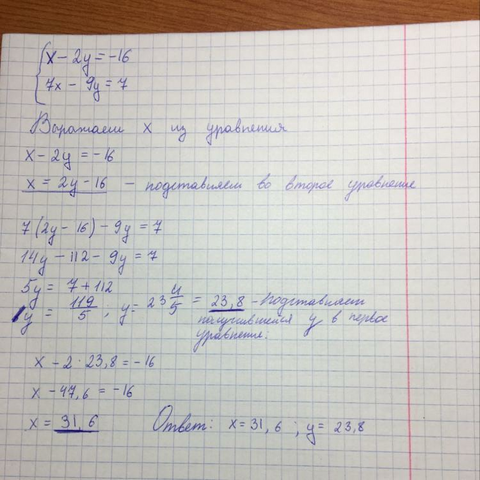 x - 2y = -16
7x - 9y = 7
Выражаем x из уравнения
x - 2y = -16
x = 2y - 16 - подставляем во второе уравнение
7(2y - 16) - 9y = 7
14y - 112 - 9y = 7
5y = 7 + 112
y = 119/5 , y = 23 4/5 = 23,8 - Подставляем
получившийся y в первое
уравнение:
x - 2 · 23,8 = -16
x - 47,6 = -16
x = 31,6 Ответ: x = 31,6 ; y = 23,8